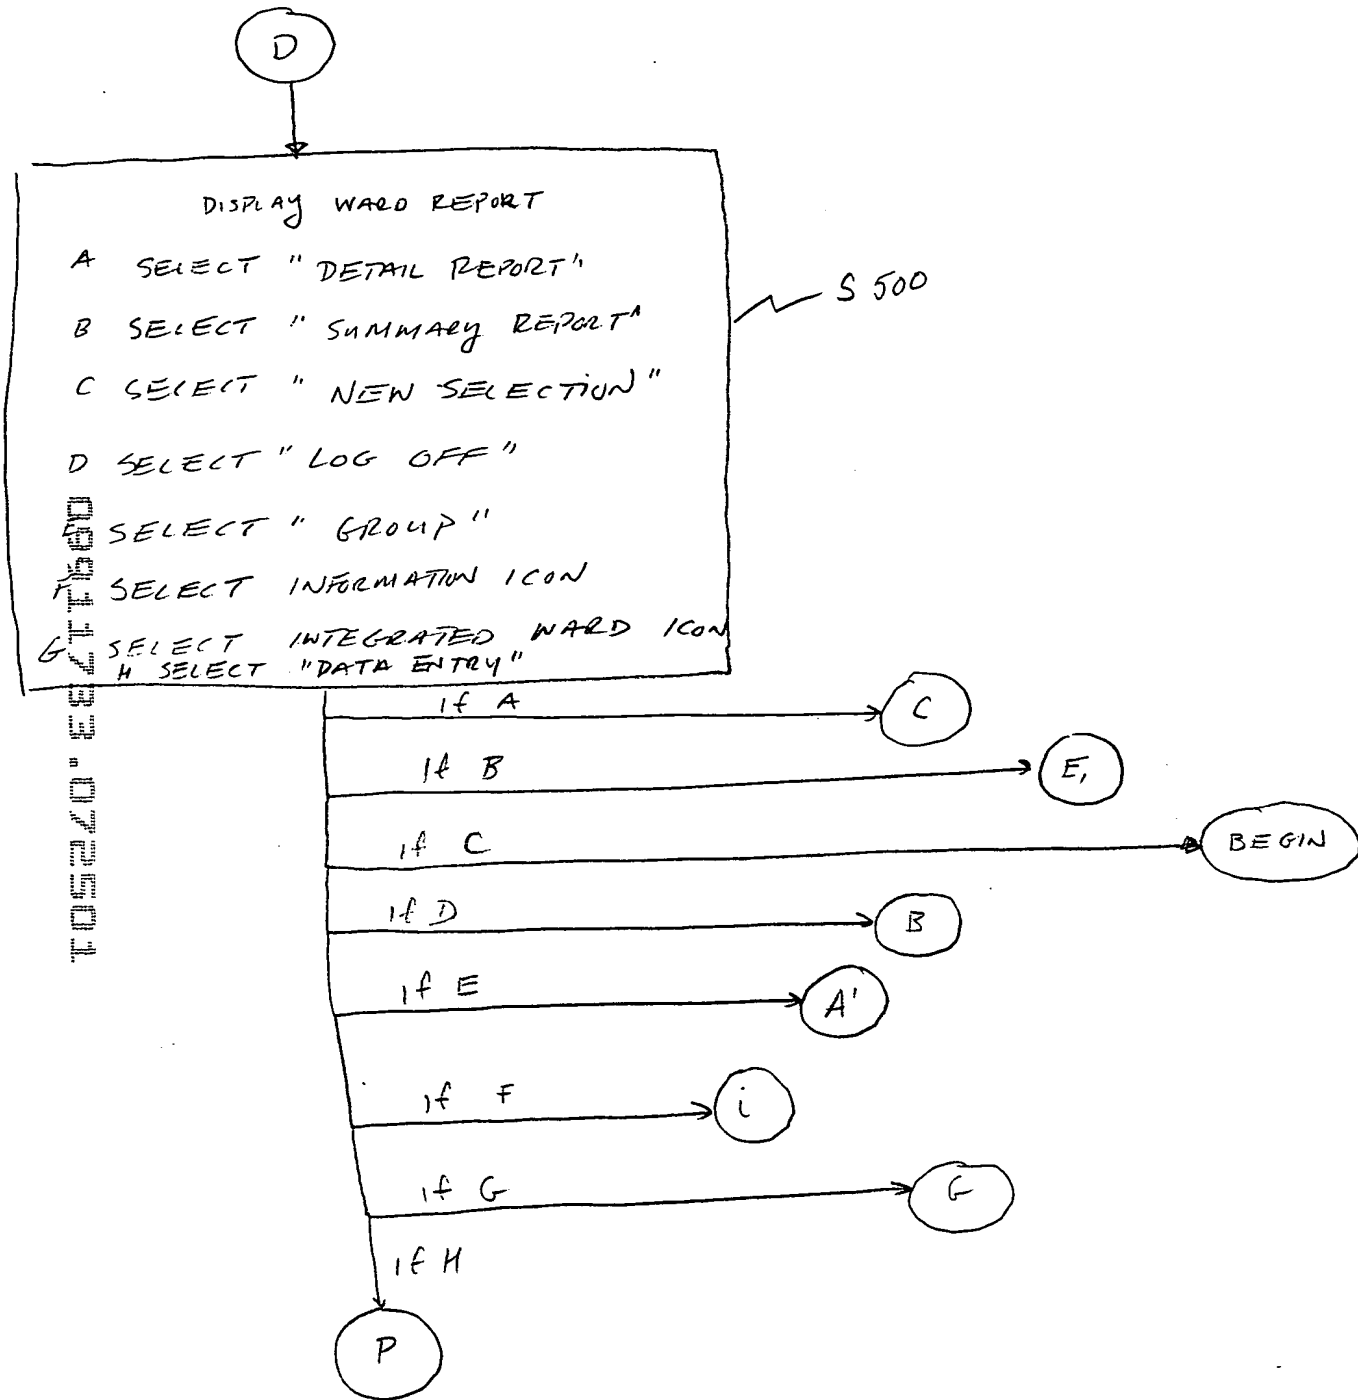 D
DISPLAY WARD REPORT
A SELECT "DETAIL REPORT"
B SELECT "SUMMARY REPORT"
S 500
C SELECT "NEW SELECTION"
D SELECT "LOG OFF"
E SELECT "GROUP"
F SELECT INFORMATION ICON
G SELECT INTEGRATED WARD ICON
H SELECT "DATA ENTRY"
09911733.072501
if A
C
If B
E,
if C
BEGIN
if D
B
if E
A'
if F
i
if G
G
if H
P